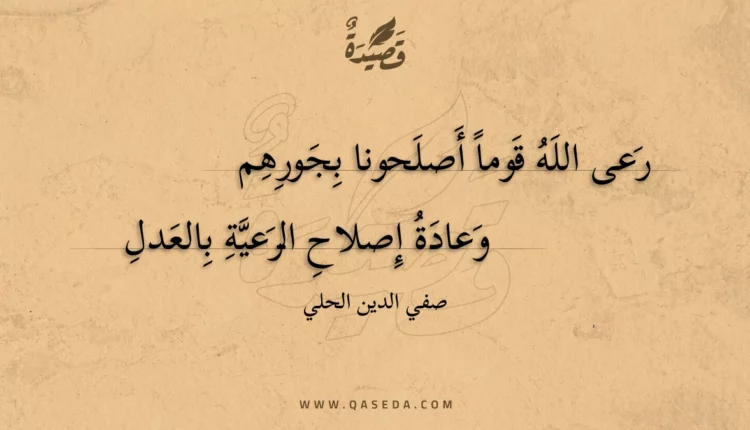 قَصِيدَةٌ
رَعى اللَهُ قَوماً أَصلَحونا بِجَورِهِم
وَعادَةُ إِصلاحِ الرَعيَّةِ بِالعَدلِ
صفي الدين الحلي
WWW.QASEDA.COM